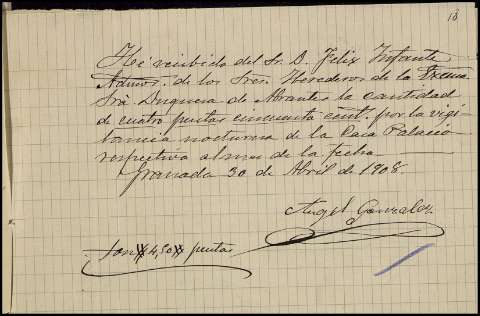 18
He recibido del Sr. D. Felix Infante
Admor. de los Sres. Herederos de la Excma
Sra Duquesa de Abrantes la cantidad
de cuatro pesetas cincuenta cent. por la vigi
lancia nocturna de la Casa Palacio
respectiva al mes de la fecha
Granada 30 de Abril de 1908.
Angel Gonzalez
Son # 4,50 # pesetas